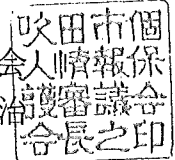 吹田市個
人情報保
護審議会
会長之印
会
治